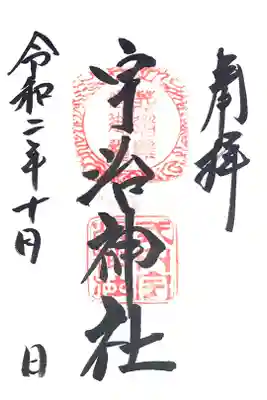 奉拝
宇治神社
令和二年十月
日